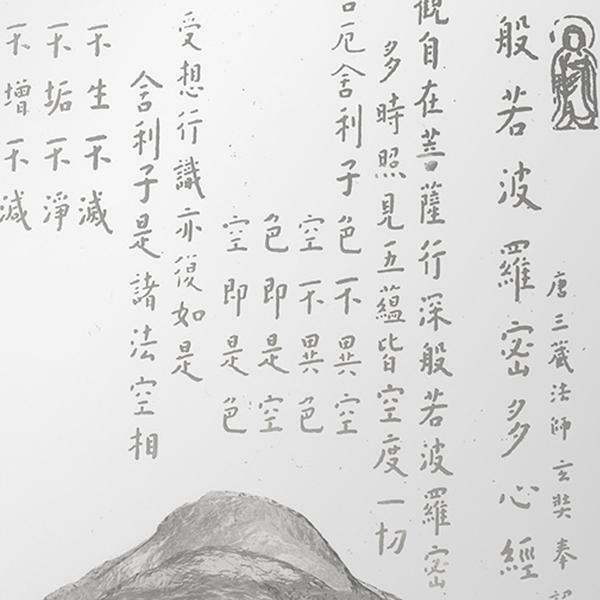 般若波羅宻多心經
唐三藏法師玄奘奉
觀自在菩薩行深般若波羅宻
多時照見五蘊皆空度一切
厄舍利子色不異空
空不異色
色即是空
空即是色
受想行識亦復如是
舍利子是諸法空相
不生不滅
不垢不淨
不增不減